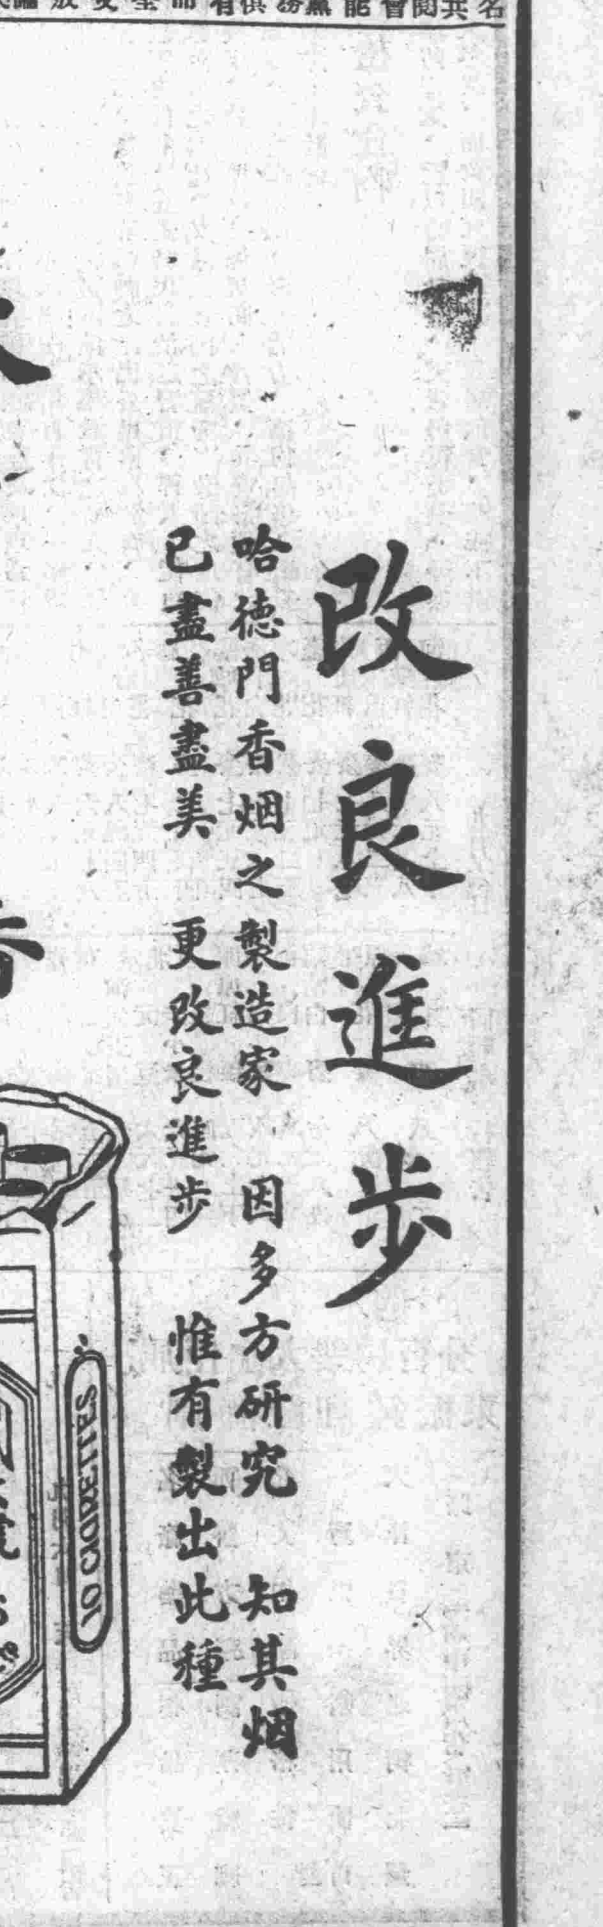 改良進步
哈德門香烟之製造家 因多方研究 知其烟
已盡善盡美 更改良進步 惟有製出此種
10 CIGARETTES